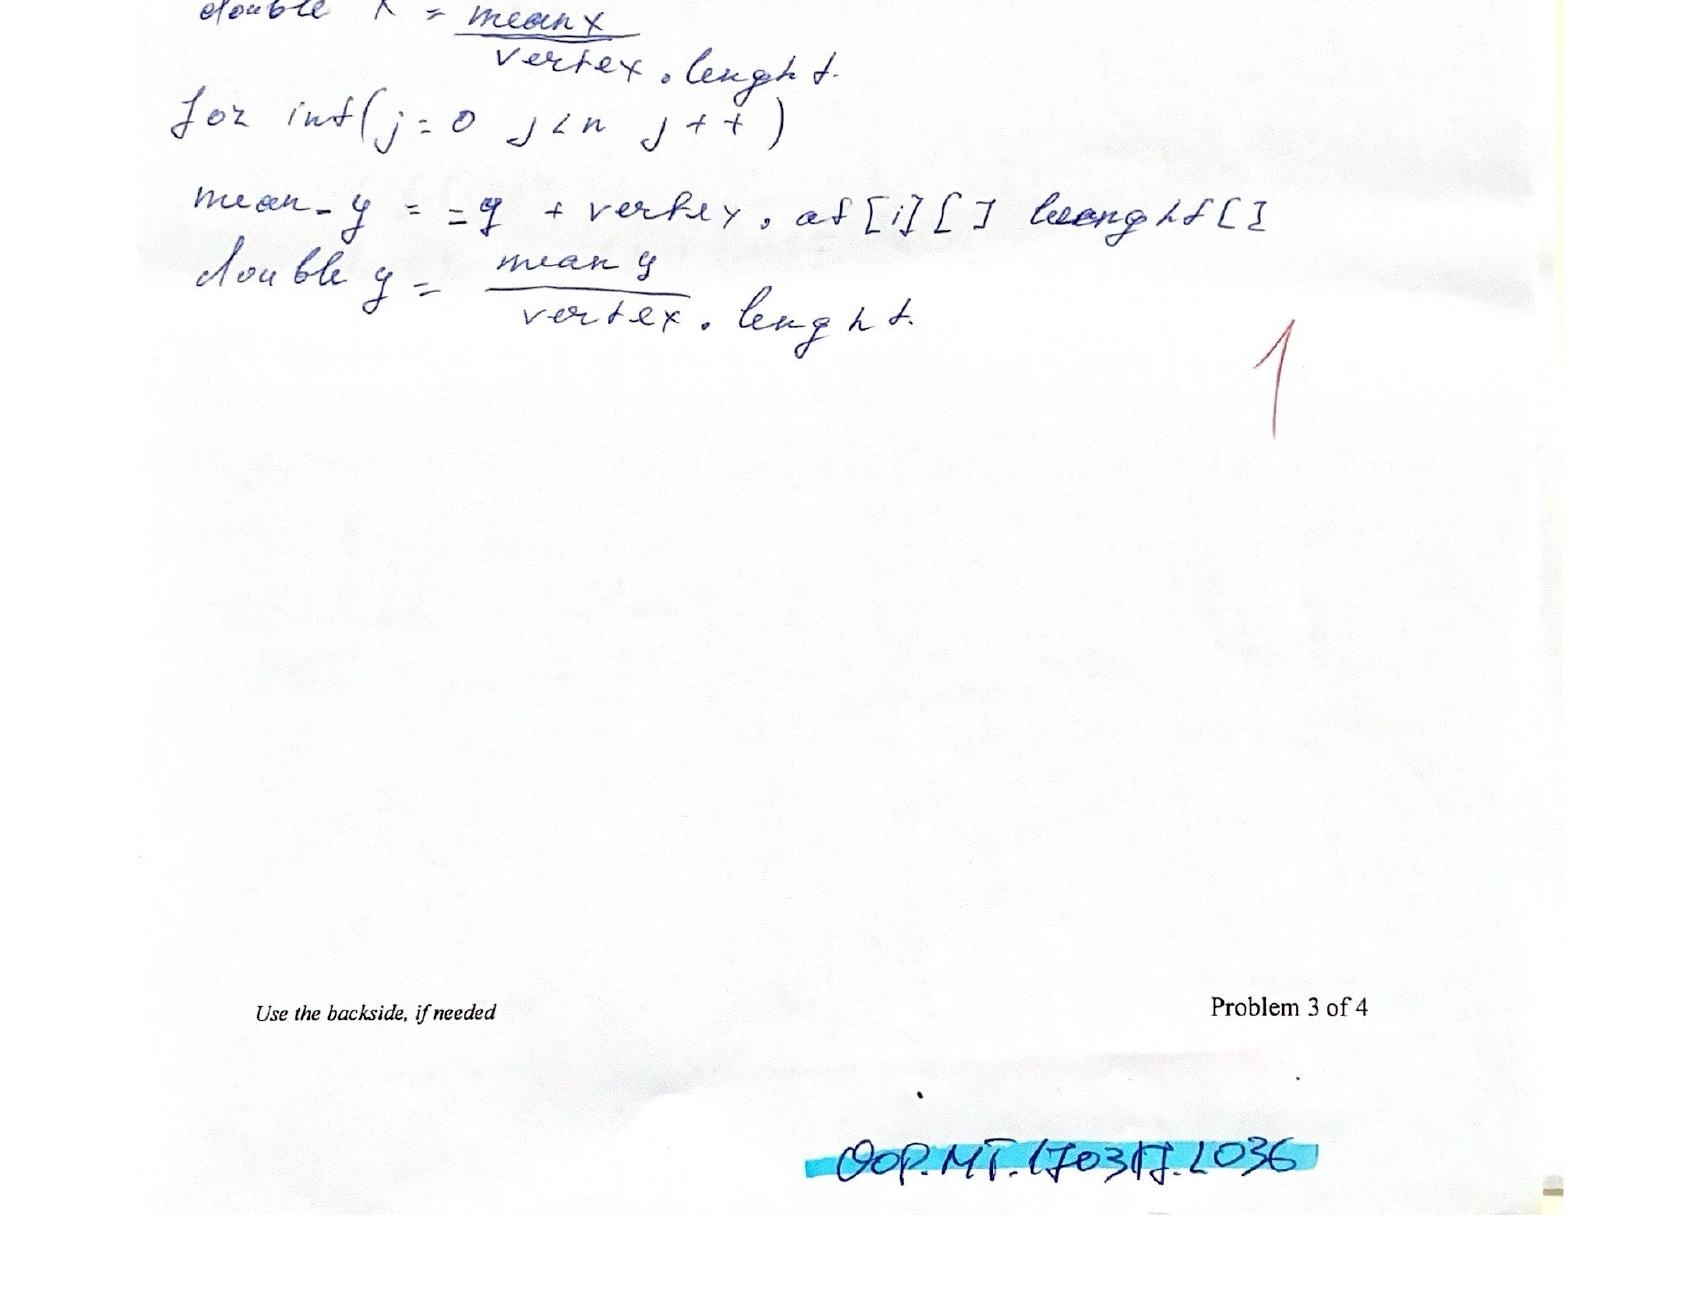 double x = mean x
vertex . lenght.
for int(j=0 j<n j++)
mean-y = =y + vertex, at [i][] leanght[]
double y = mean y
vertex . lenght.
1
Use the backside, if needed
Problem 3 of 4
OOP.MT.170317.L036